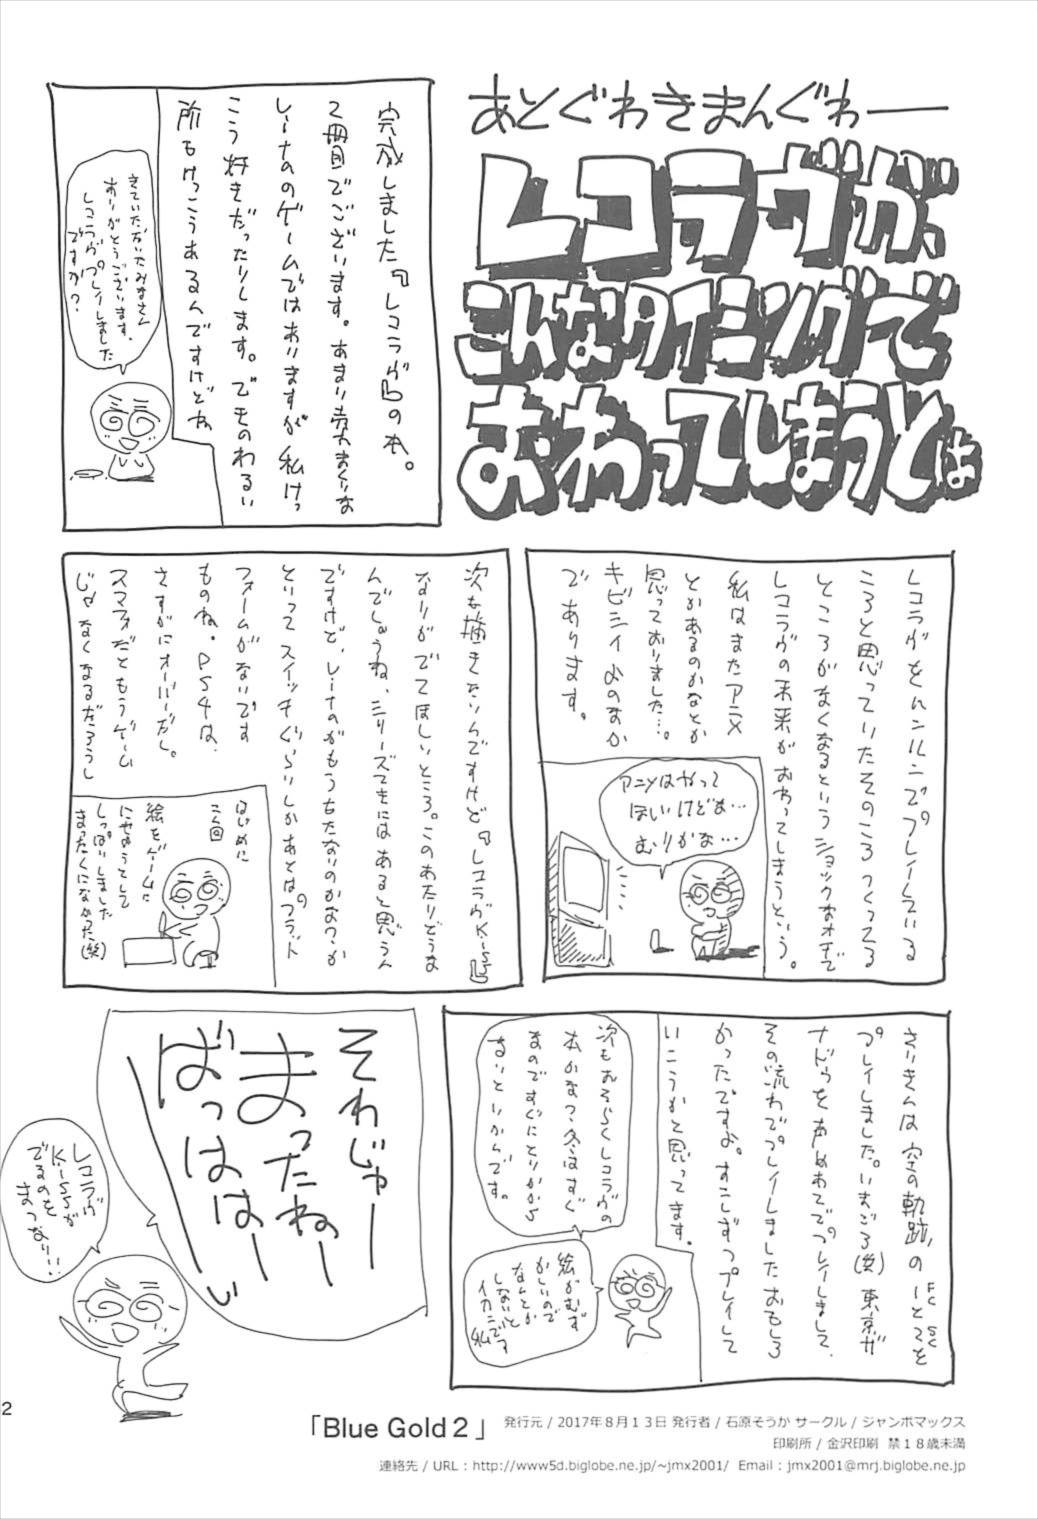 あとぐわきまんぐわー
レコラヴが、
こんなタイミングで
おわってしまうとは
完成しました『レコラヴ』の本。
2冊目でございます。あまり売れまくりな
レーベルのゲームではありますが 私けっ
こう好きだったりします。でものわるい
所もけっこうあるんですけどね
きていただいたみなさん
ありがとうございます、
レコラヴプレイしました
ですか?
レコラヴをハンルンでプレイしている
ころと思っていたそのころ つくってる
ところがなくなるというショックなオチで
レコラヴの未来がおわってしまうという。
私はまたアニメ
とかあるのかなとか
思っておりました…。
キビシイよのなか
であります。
アニメはやって
ほしいけどなぁ…
むりかな…
次も描きたいんですけど『レコラヴKiss』
なりがでてほしいところ。このあたりどうな
んでしょうね、シリーズてきにはあると思うん
ですけど、
といってスイッチぐらいしかあとはプラット
フォームがないです
ものね。PS4は、
さすがにオーバーだし。
スマフォだともうゲーム
じゃなくなるだろうし
はじめに
今回
絵をゲームに
にせようとして
しっぱいしました
まったくにてなかった(笑)
さいきんは 空の軌跡、の FC SC とってを
プレイしました。いまごろ(笑) 東京ザ
ナドゥを始めてプレイしまして、
その流れでプレイしましたおもしろ
かったですよ。すこしずつプレイして
いこうかと思ってます。
次もおそらくレコラヴの
本かな?冬はすぐ
なのですぐにとりかから
ないといかんです。
絵がむず
かしいので
なんとか
しないと
イカンです
私
それじゃー
まったねー
ばっはは〜い
レコラヴ
Kissが
でるのを
まつなり!!
2
「Blue Gold 2」 発行元 / 2017年8月13日 発行者 / 石原そうか サークル / ジャンボマックス
印刷所 / 金沢印刷 禁18歳未満
連絡先 / URL : http://www5d.biglobe.ne.jp/~jmx2001/ Email : jmx2001@mrj.biglobe.ne.jp